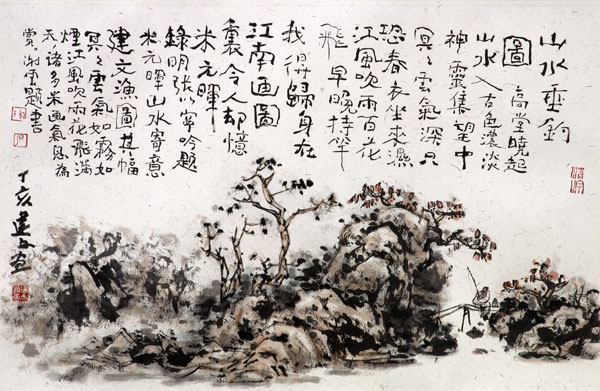 山水垂釣
圖 高堂曉起
山水入古色濃淡
神靈集望中
冥冥雲氣深只
恐春衣坐來濕
江風吹雨百花
飛早晚持竿
我得歸身在
江南画圖
裏令人却憶
米元暉
錄明張以寧吟題
米元暉山水寄意
建文漁圖其幅
冥冥雲氣如霧如
煙江風吹雨花飛滿
天諸多米画氣息為
賞謝雲題書
丁亥建文画